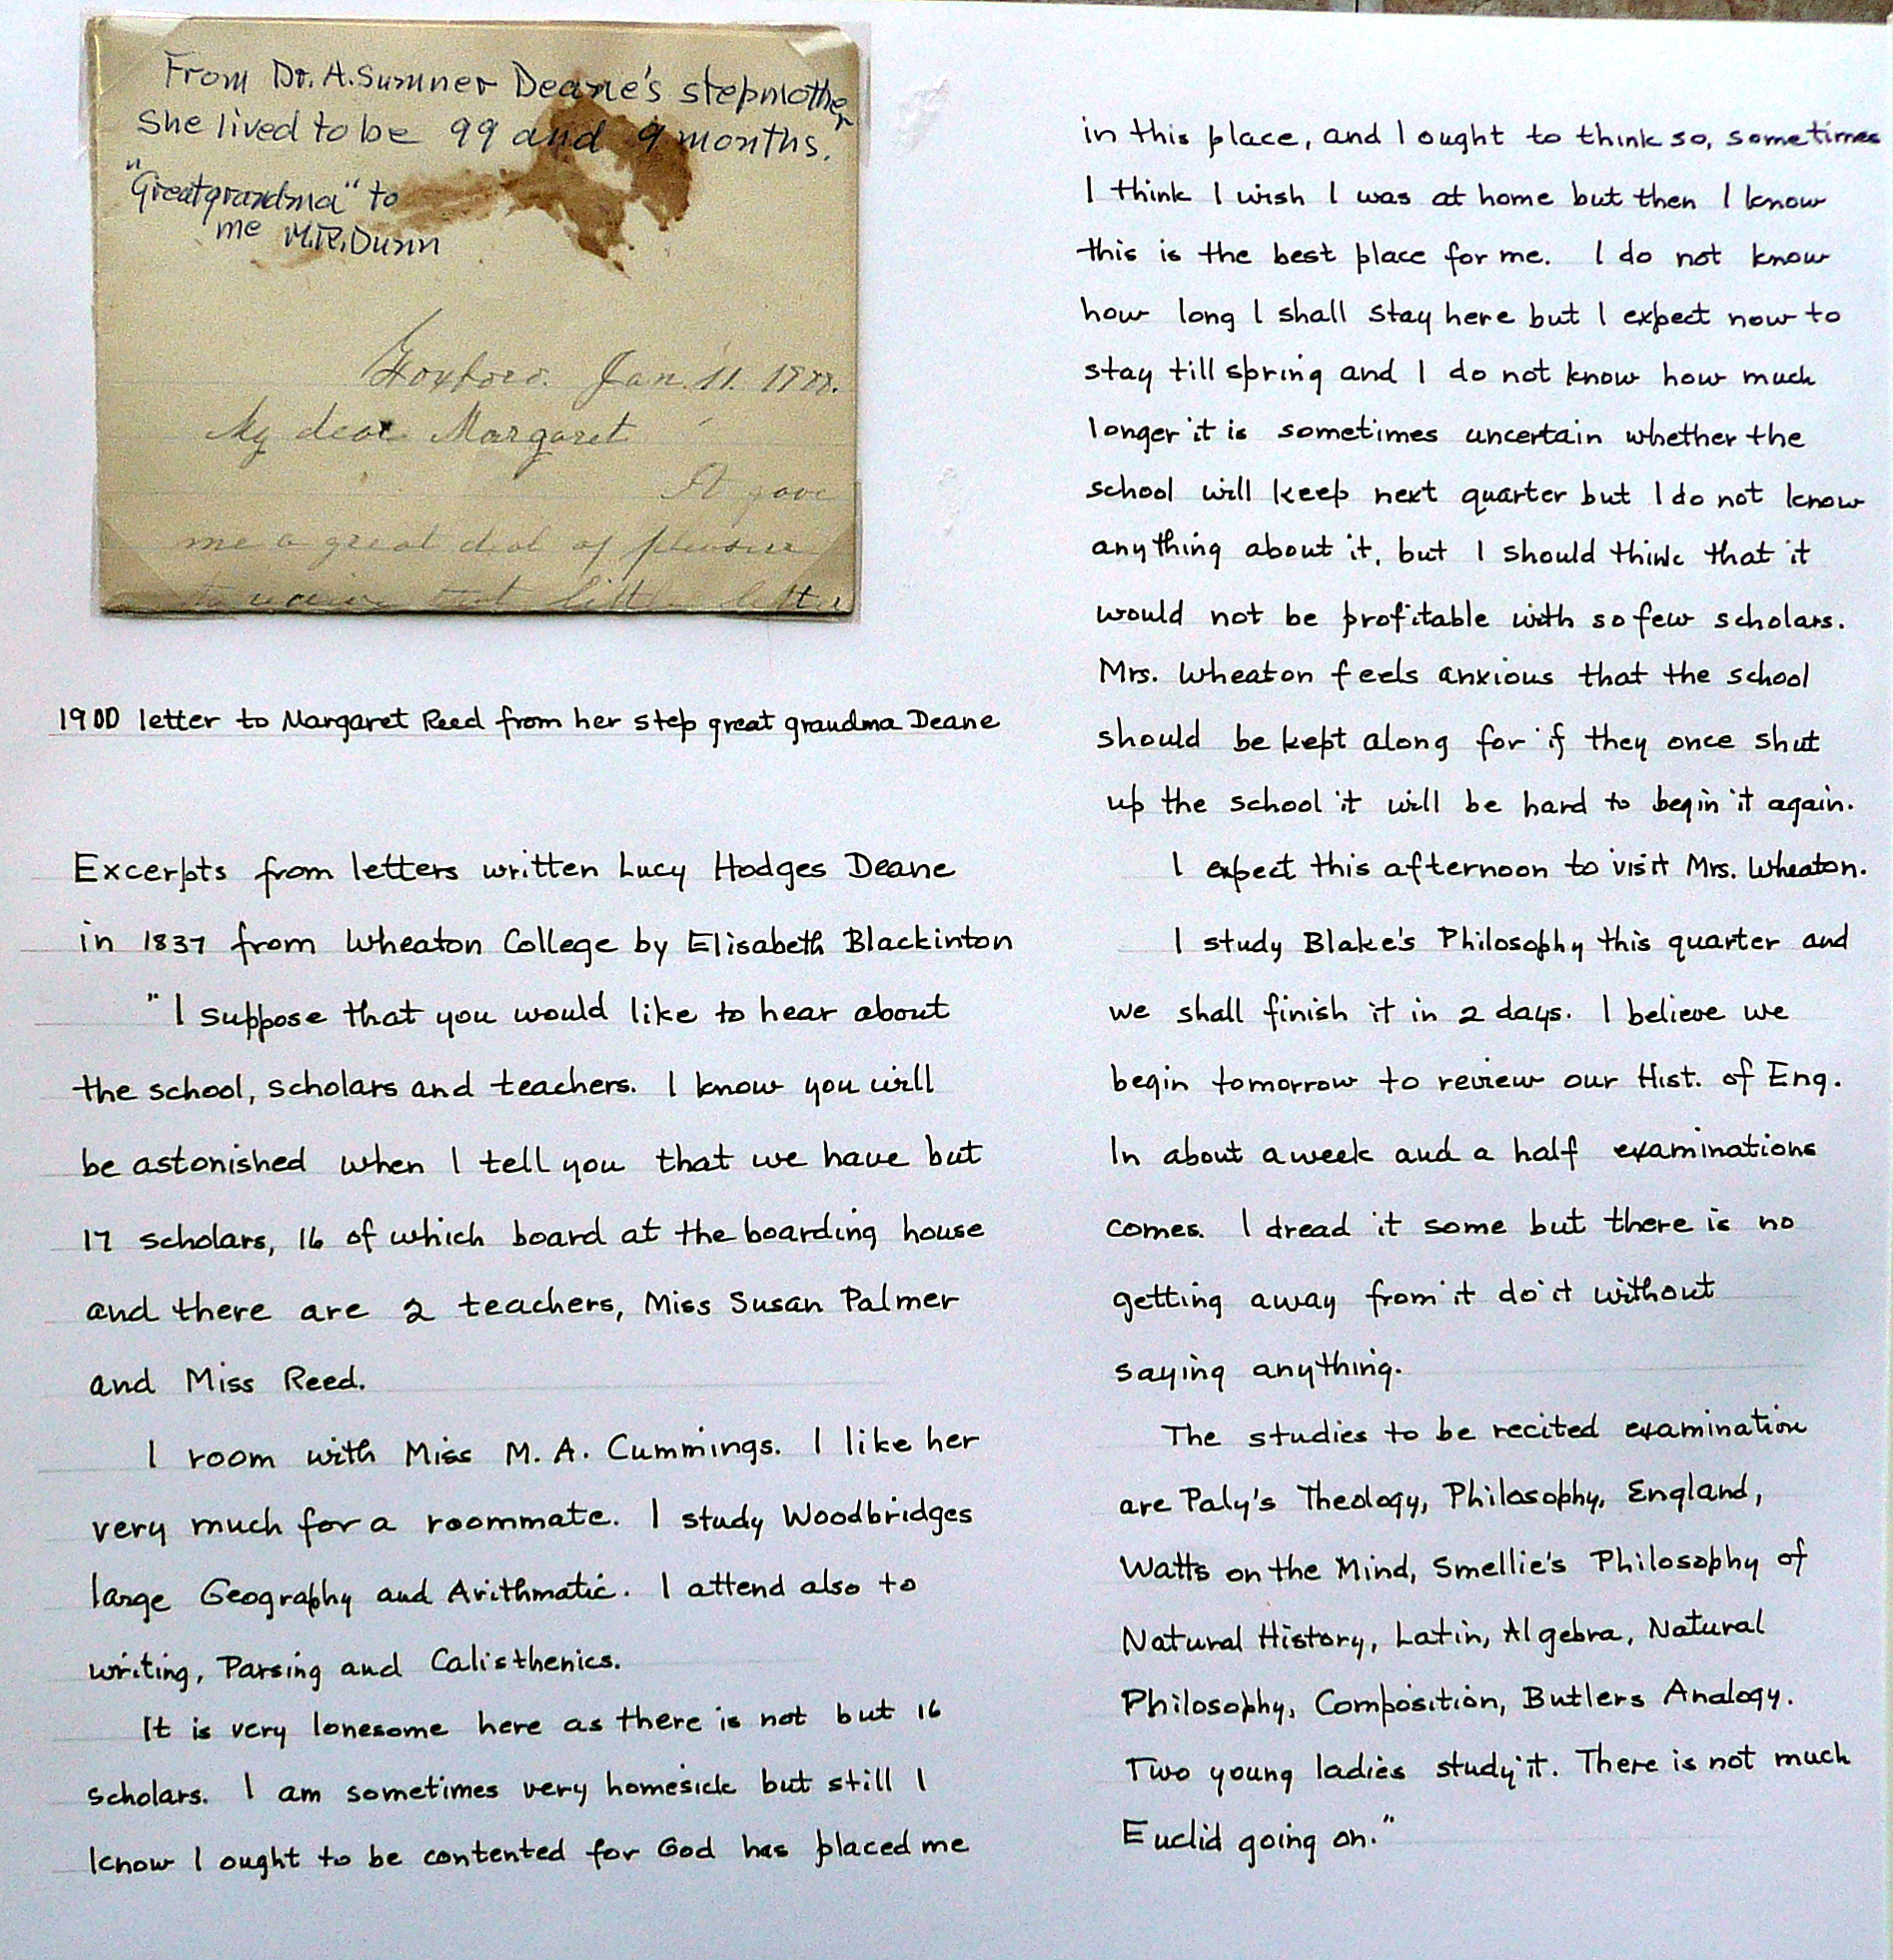 From Dr. A. Sumner Deane's stepmother
She lived to be 99 and 9 months.
"Greatgrandma" to
me M.R. Dunn
Jan. 11. 
My dear Margaret
It gave
me a great deal of pleasure
to receive that little letter
1900 letter to Margaret Reed from her step great grandma Deane
Excerpts from letters written Lucy Hodges Deane
in 1837 from Wheaton College by Elisabeth Blackinton
"I suppose that you would like to hear about
the school, scholars and teachers. I know you will
be astonished when I tell you that we have but
17 scholars, 16 of which board at the boarding house
and there are 2 teachers, Miss Susan Palmer
and Miss Reed.
I room with Miss M. A. Cummings. I like her
very much for a roommate. I study Woodbridges
large Geography and Arithmatic. I attend also to
writing, Parsing and Calisthenics.
It is very lonesome here as there is not but 16
scholars. I am sometimes very homesick but still I
know I ought to be contented for God has placed me
in this place, and I ought to think so, sometimes
I think I wish I was at home but then I know
this is the best place for me. I do not know
how long I shall stay here but I expect now to
stay till spring and I do not know how much
longer it is sometimes uncertain whether the
school will keep next quarter but I do not know
anything about it, but I should think that it
would not be profitable with so few scholars.
Mrs. Wheaton feels anxious that the school
should be kept along for if they once shut
up the school it will be hard to begin it again.
I expect this afternoon to visit Mrs. Wheaton.
I study Blake's Philosophy this quarter and
we shall finish it in 2 days. I believe we
begin tomorrow to review our Hist. of Eng.
In about a week and a half examinations
comes. I dread it some but there is no
getting away from it do it without
saying anything.
The studies to be recited examination
are Paly's Theology, Philosophy, England,
Watts on the Mind, Smellie's Philosophy of
Natural History, Latin, Algebra, Natural
Philosophy, Composition, Butlers Analogy.
Two young ladies study it. There is not much
Euclid going on."